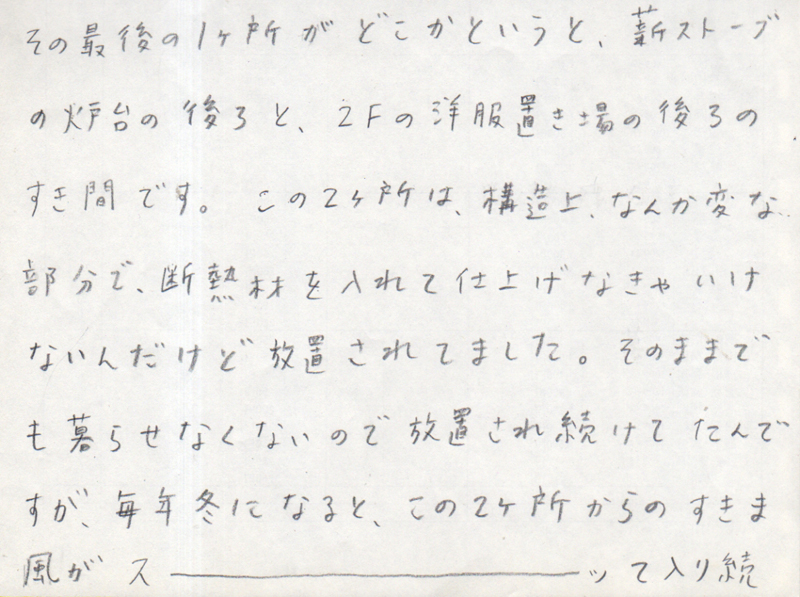 その最後の1ヶ所がどこかというと、薪ストーブ
の炉台の後ろと、2Fの洋服置き場の後ろの
すき間です。この2ヶ所は、構造上、なんか変な
部分で、断熱材を入れて仕上げなきゃいけ
ないんだけど放置されてました。そのままで
も暮らせなくないので放置され続けてたんで
すが、毎年冬になると、この2ヶ所からのすきま
風がス――――――――ッて入り続